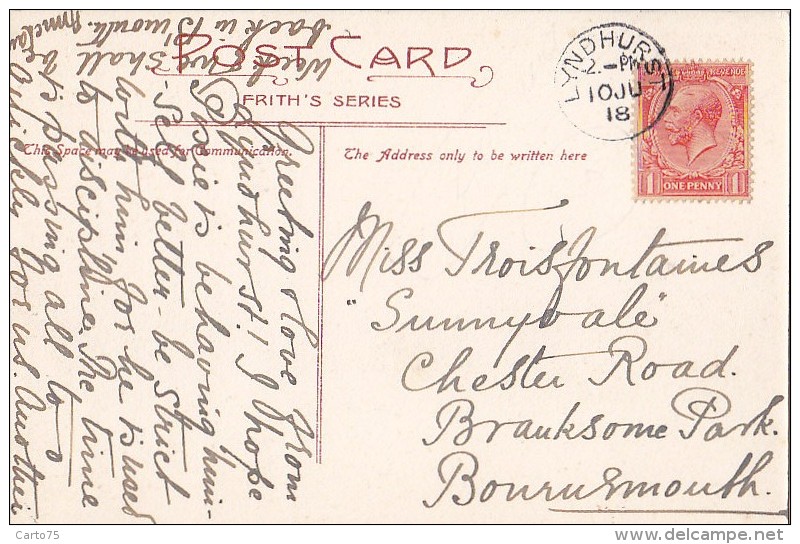 POST CARD
FRITH'S SERIES
This Space may be used for Communication.
The Address only to be written here
LYNDHURST
2.-PM
10 JU
18
ONE PENNY
1 1
Miss Troisfontaines
"Sunnyvale"
Chester Road.
Branksome Park.
Bournemouth.
Greeting & love from
Lyndhurst! I hope
is behaving him-
self better - be strict
with him, for he is used
to discipline. The time
is passing all too
quickly for us. Another
week and shall be
back in B'mouth.
Carto75
delcampe.net